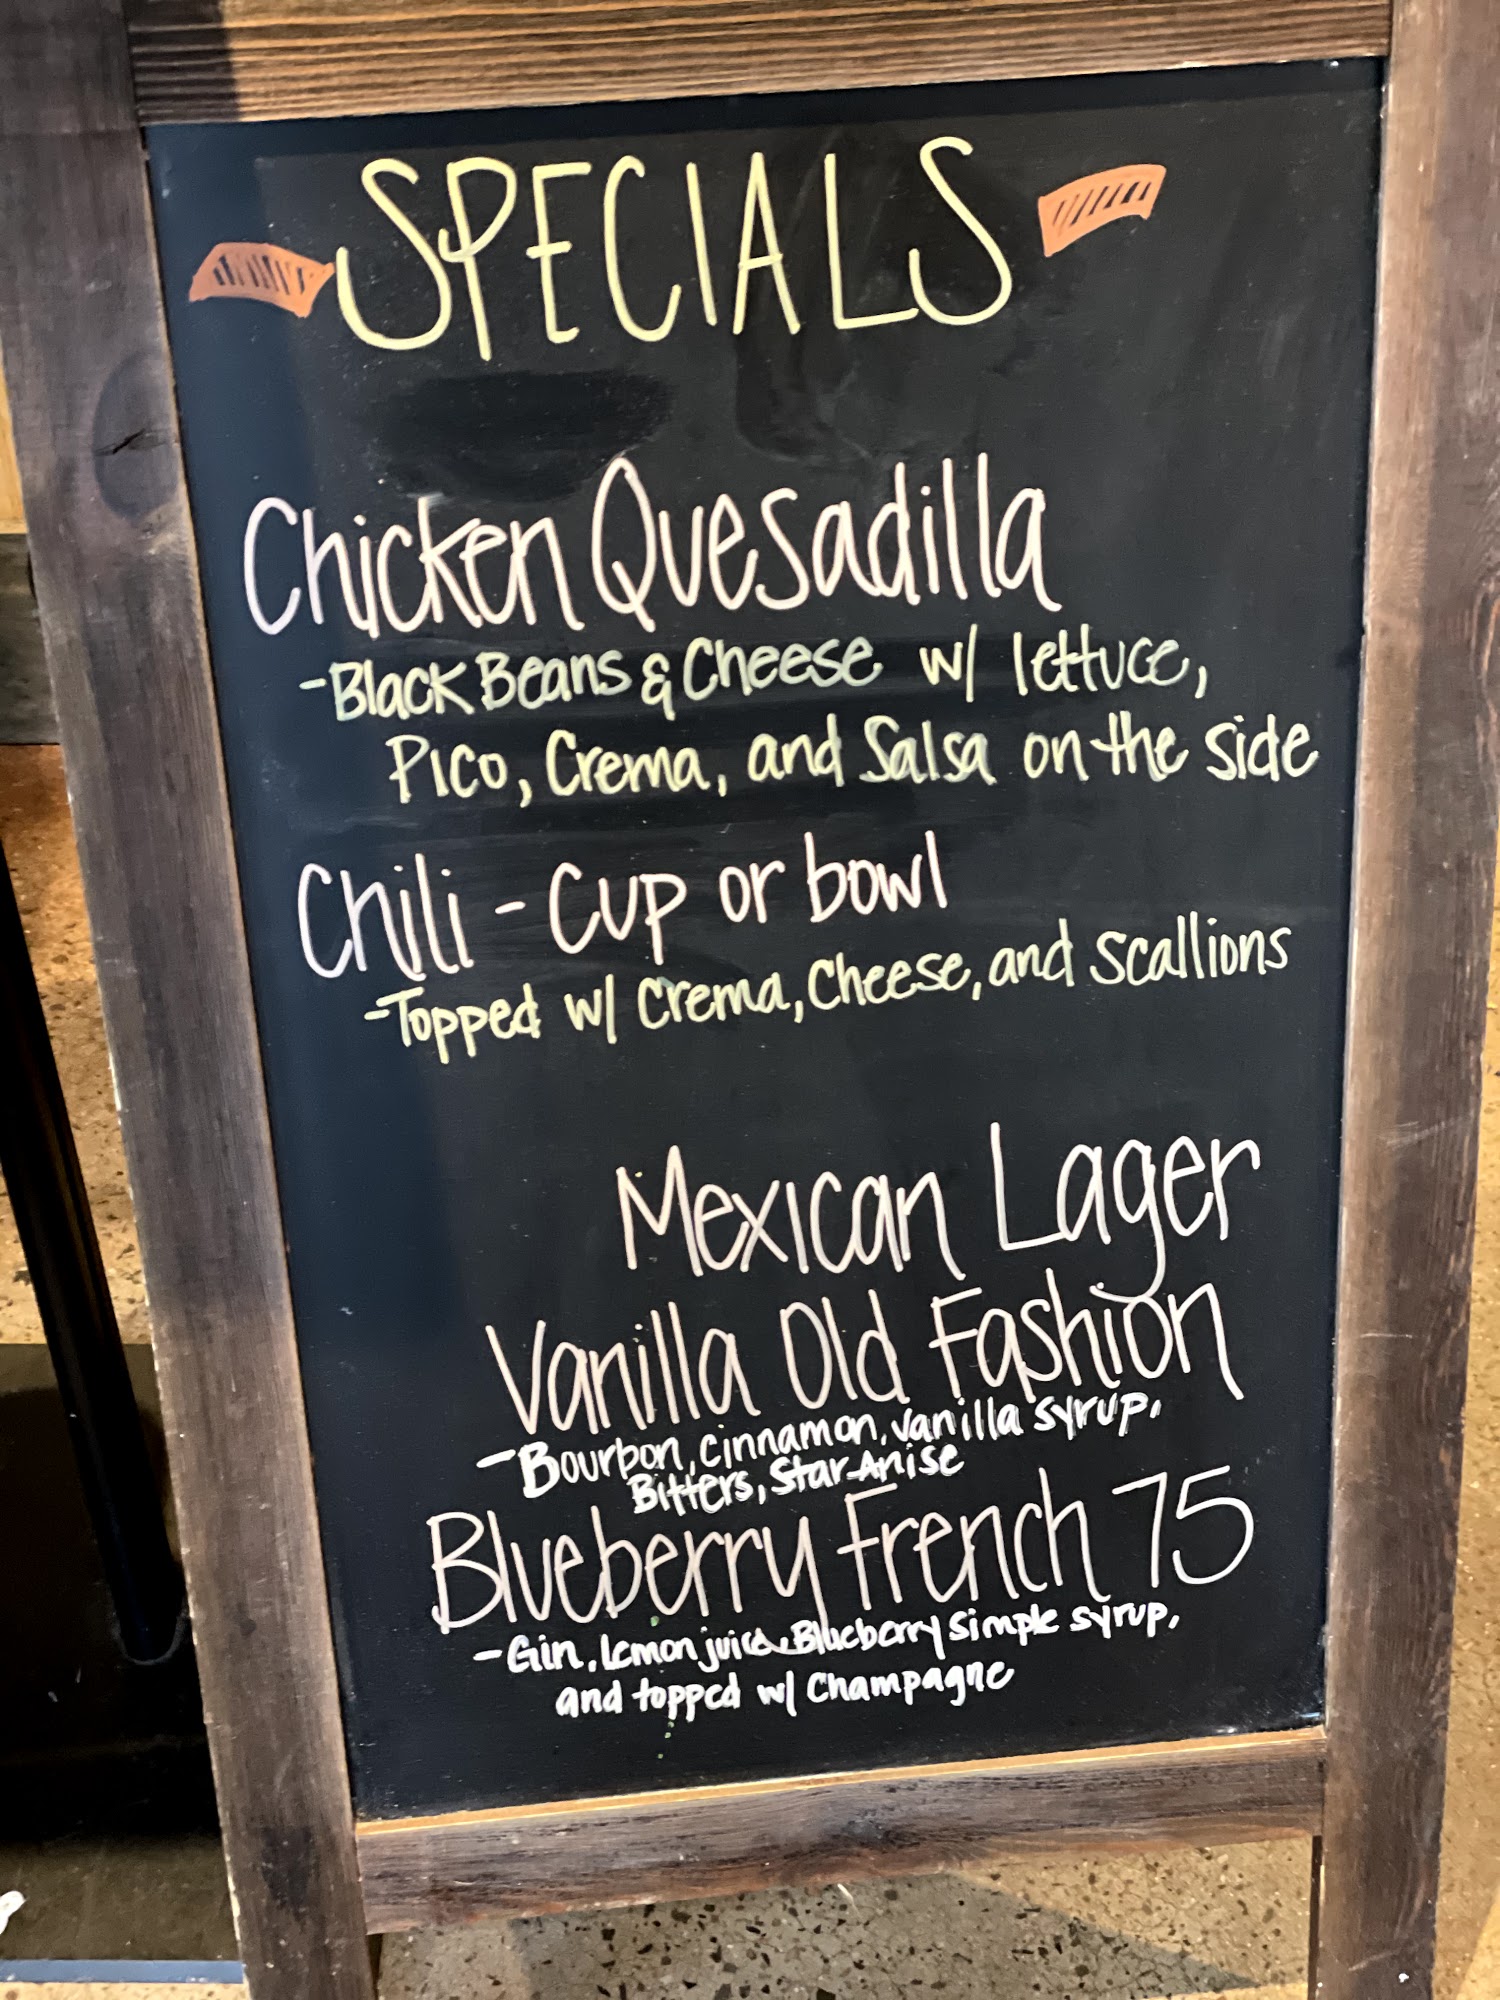 SPECIALS
Chicken Quesadilla
-Black Beans & Cheese w/ lettuce,
Pico, Crema, and Salsa on the side
Chili - Cup or bowl
-Topped w/ Crema, Cheese, and Scallions
Mexican Lager
Vanilla Old Fashion
-Bourbon, cinnamon, vanilla syrup,
Bitters, Star Anise
Blueberry French 75
-Gin, lemon juice, Blueberry simple syrup,
and topped w/ Champagne